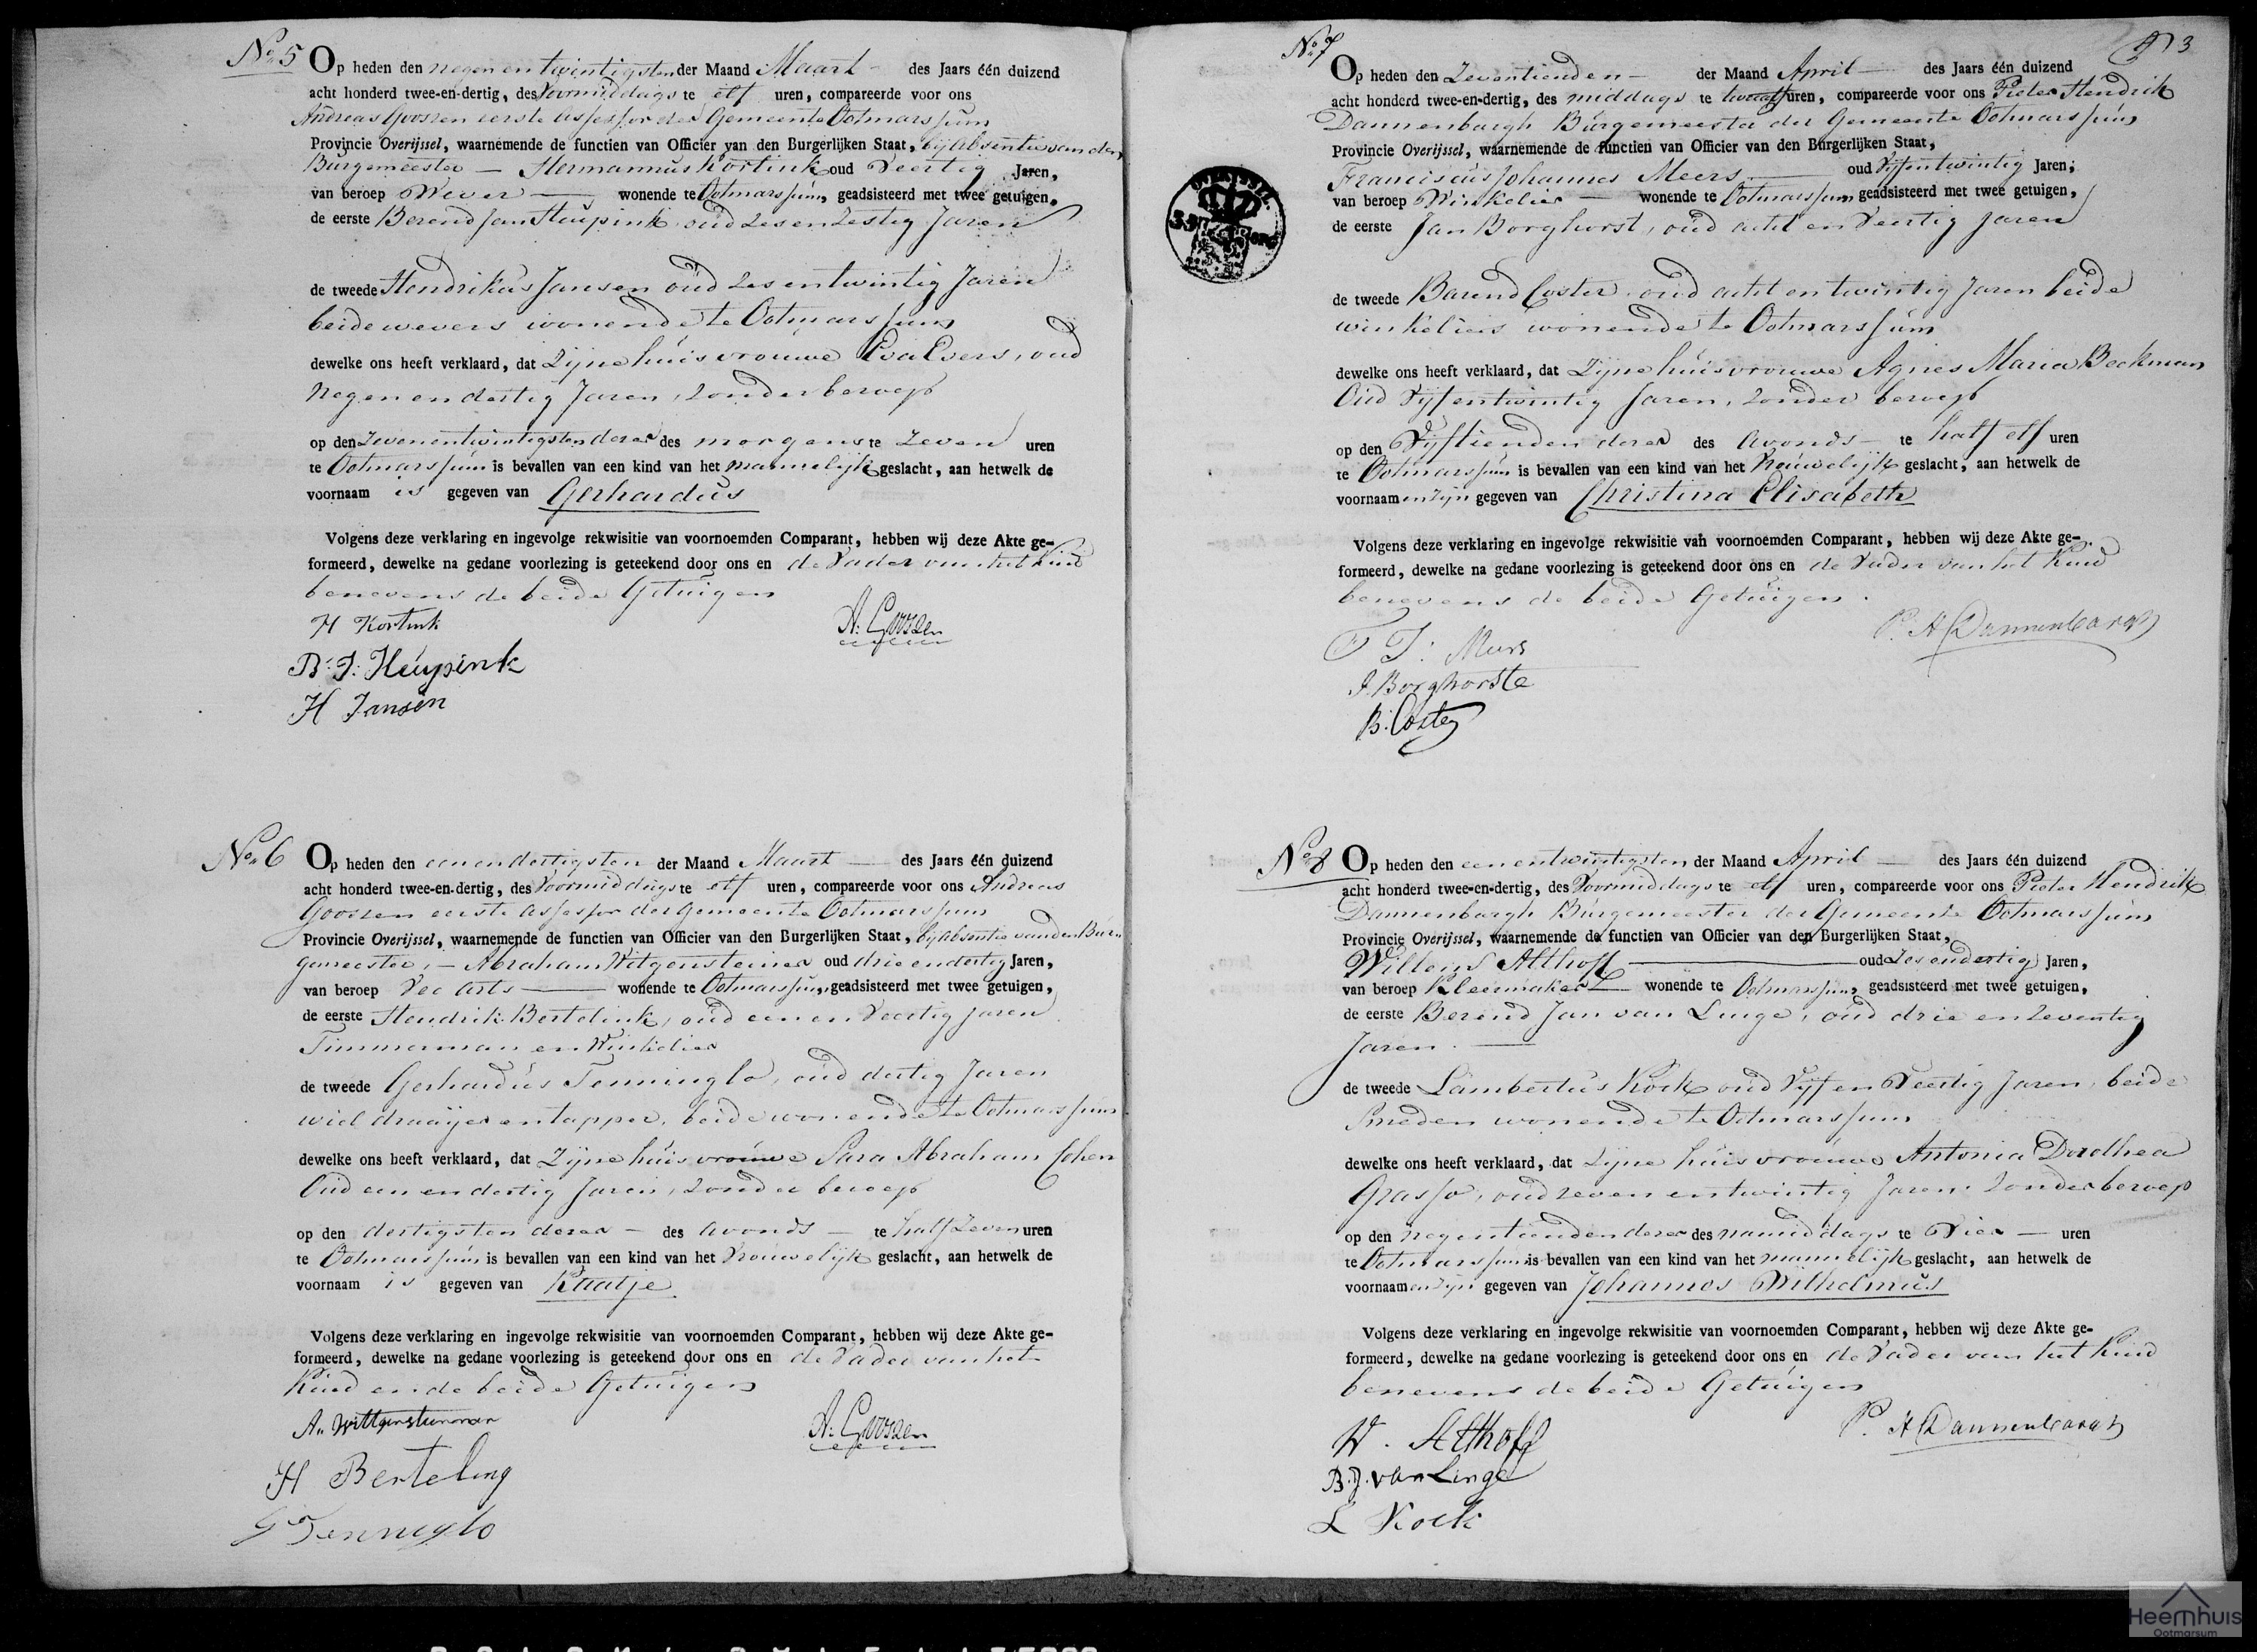 No 5 Op heden den negen en twintigsten der Maand Maart des Jaars één duizend
acht honderd twee-en-dertig, des Voormiddags te elf uren, compareerde voor ons
Andreas Goossen eerste Assessor der Gemeente Ootmarssum
Provincie Overijssel, waarnemende de functien van Officier van den Burgerlijken Staat, bij absentie van den
Burgemeester — Hermannus Kortink oud Veertig Jaren,
van beroep Wever wonende te Ootmarssum, geadsisteerd met twee getuigen,
de eerste Berend Jan Heupink, oud Zes en Zestig Jaren
de tweede Hendrikus Jansen oud Zes en twintig Jaren
beide wevers wonende te Ootmarssum
dewelke ons heeft verklaard, dat Zijne huisvrouwe Eva Evers, oud
Negen en dertig Jaren, Zonder beroep
op den Zeven en twintigsten dezer des morgens te Zeven uren
te Ootmarssum is bevallen van een kind van het mannelijk geslacht, aan hetwelk de
voornaam is gegeven van Gerhardus
Volgens deze verklaring en ingevolge rekwisitie van voornoemden Comparant, hebben wij deze Akte ge-
formeerd, dewelke na gedane voorlezing is geteekend door ons en de Vader van het Kind
benevens de beide Getuigen
H Kortink A: Goossen
B: J: Heupink
H Jansen
No 6 Op heden den een en dertigsten der Maand Maart des Jaars één duizend
acht honderd twee-en-dertig, des Voormiddags te elf uren, compareerde voor ons Andreas
Goossen eerste Assessor der Gemeente Ootmarssum
Provincie Overijssel, waarnemende de functien van Officier van den Burgerlijken Staat, bij absentie van den Bur
gemeester, — Abraham Witgensteiner oud drie en dertig Jaren,
van beroep Vee Arts wonende te Ootmarssum, geadsisteerd met twee getuigen,
de eerste Hendrik Bertelink, oud een en Veertig Jaren
Timmerman en Winkelier
de tweede Gerhardus Tenninglo, oud dertig Jaren
wiel draaijer en tapper, beide wonende te Ootmarssum
dewelke ons heeft verklaard, dat Zijne huisvrouwe Sara Abraham Cohen
Oud een en dertig Jaren, Zonder beroep
op den dertigsten dezer des avonds te half Zeven uren
te Ootmarssum is bevallen van een kind van het Vrouwelijk geslacht, aan hetwelk de
voornaam is gegeven van Kaatje
Volgens deze verklaring en ingevolge rekwisitie van voornoemden Comparant, hebben wij deze Akte ge-
formeerd, dewelke na gedane voorlezing is geteekend door ons en de Vader van het
Kind en de beide Getuigen
A: Goossen
H Berteling
G Tenneglo
3
No 7 Op heden den Zeventienden der Maand April des Jaars één duizend
acht honderd twee-en-dertig, des middags te twaalf uren, compareerde voor ons Pieter Hendrik
Dannenbargh Burgemeester der Gemeente Ootmarssum
Provincie Overijssel, waarnemende de functien van Officier van den Burgerlijken Staat,
Franciscus Johannes Meers oud Vijf en twintig Jaren,
van beroep Winkelier wonende te Ootmarssum geadsisteerd met twee getuigen,
de eerste Jan Borghorst, oud acht en Veertig Jaren
de tweede Barend Coster, oud acht en twintig Jaren beide
winkeliers wonende te Ootmarssum
dewelke ons heeft verklaard, dat Zijne huisvrouwe Agnes Maria Beckman
Oud Vijf en twintig Jaren, Zonder beroep
op den Vijftienden dezer des avonds te half elf uren
te Ootmarssum is bevallen van een kind van het Vrouwelijk geslacht, aan hetwelk de
voornaamen zijn gegeven van Christina Elisabeth
Volgens deze verklaring en ingevolge rekwisitie van voornoemden Comparant, hebben wij deze Akte ge-
formeerd, dewelke na gedane voorlezing is geteekend door ons en de Vader van het Kind
benevens de beide Getuigen.
F J: Murs P. H Dannenbargh
J. Borghorste
B: Coster
No 8 Op heden den een en twintigsten der Maand April des Jaars één duizend
acht honderd twee-en-dertig, des Voormiddags te elf uren, compareerde voor ons Pieter Hendrik
Dannenbargh Burgemeester der Gemeente Ootmarssum
Provincie Overijssel, waarnemende de functien van Officier van den Burgerlijken Staat,
Willem Althoff oud Zes en dertig Jaren,
van beroep Kleermaker wonende te Ootmarssum, geadsisteerd met twee getuigen,
de eerste Berend Jan van Linge, oud drie en Zeventig
Jaren.
de tweede Lambertus Kock oud Vijf en Veertig Jaren, beide
Smeden wonende te Ootmarssum
dewelke ons heeft verklaard, dat Zijne huisvrouwe Antonia Dorothea
Grasso, oud zeven en twintig Jaren. Zonder beroep
op den Negentienden dezer des namiddags te Vier uren
te Ootmarssum is bevallen van een kind van het mannelijk geslacht, aan hetwelk de
voornaamen zijn gegeven van Johannes Wilhelmus
Volgens deze verklaring en ingevolge rekwisitie van voornoemden Comparant, hebben wij deze Akte ge-
formeerd, dewelke na gedane voorlezing is geteekend door ons en de Vader van het Kind
benevens de beide Getuigen
W. Althoff P. H Dannenbargh
B.J. van Linge
L Kock
Heemhuis
Ootmarsum